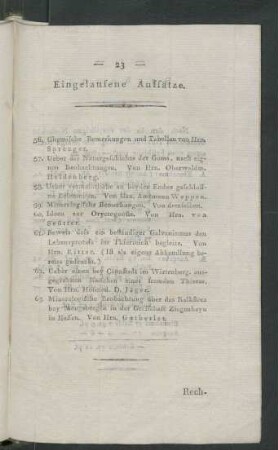 — 23 —
Eingelaufene Aufsätze.
56. Chemische Bemerkungen und Tabellen von Hrn.
Sprenger.
57. Ueber die Naturgeschichte der Gems, nach eig-
nen Beobachtungen. Von Hrn. Oberwaldm.
Heldenberg.
58. Ueber
Von Hrn. Amtmann Weppen.
59. Mineralogische Bemerkungen. Von demselben.
60. Ideen zur Oryctognosie. Von Hrn. von
61. Beweis dass ein beständiger Galvanismus den
Lebensprocess im Thierreich begleite. Von
Hrn. Ritter. (Ist als eigene Abhandlung be-
reits gedruckt.)
62. Ueber einen bey Canstadt im Würtemberg. aus-
gegrabenen Knochen eines fremden Thieres.
Von Hrn. Hofmed. D. Jäger.
63. Mineralogische Beobachtung über das Kalkflöz
bey Mengshausen in der Grafschaft Ziegenhayn
in Hessen. Von Hrn.
Rech-